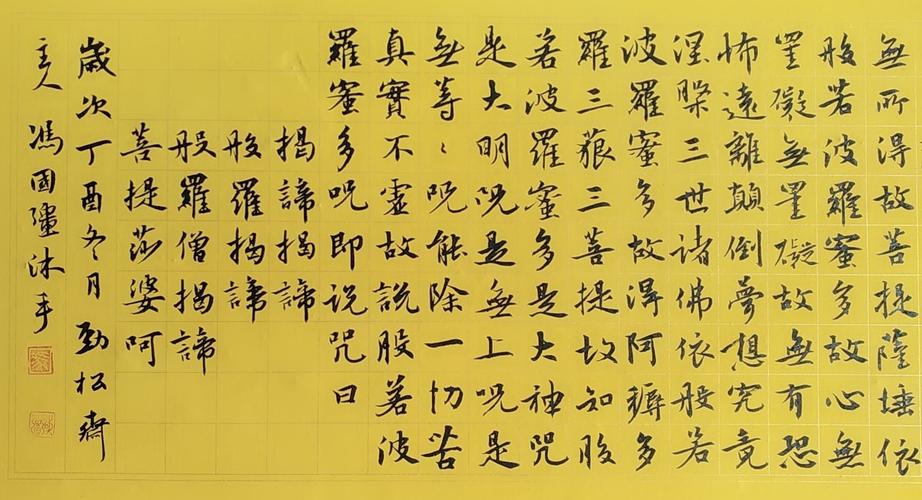 無所得故菩提薩埵依
般若波羅蜜多故心無
罣礙無罣礙故無有恐
怖遠離顛倒夢想究竟
涅槃三世諸佛依般若
波羅蜜多故得阿耨多
羅三藐三菩提故知般
若波羅蜜多是大神咒
是大明呪是無上呪是
無等〻呪能除一切苦
真實不虛故説般若波
羅蜜多呪即説咒曰
揭諦揭諦
般羅揭諦
般羅僧揭諦
菩提莎婆呵
歲次丁酉冬月勁松齋
主人馮國沐手